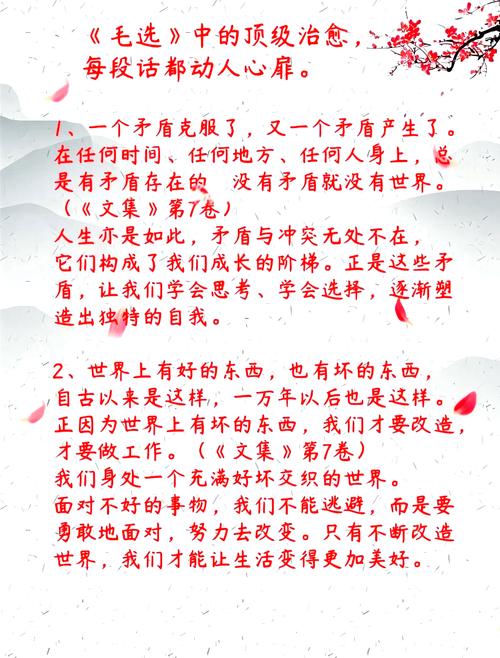 《毛选》中的顶级治愈，
每段话都动人心扉。
1、一个矛盾克服了，又一个矛盾产生了。
在任何时间、任何地方、任何人身上，总
是有矛盾存在的　没有矛盾就没有世界。
（《文集》第7卷）
人生亦是如此，矛盾与冲突无处不在，
它们构成了我们成长的阶梯。正是这些矛
盾，让我们学会思考、学会选择，逐渐塑
造出独特的自我。
2、世界上有好的东西，也有坏的东西，
自古以来是这样，一万年以后也是这样。
正因为世界上有坏的东西，我们才要改造，
才要做工作。（《文集》第7卷）
我们身处一个充满好坏交织的世界。
面对不好的事物，我们不能逃避，而是要
勇敢地面对，努力去改变。只有不断改造
世界，我们才能让生活变得更加美好。